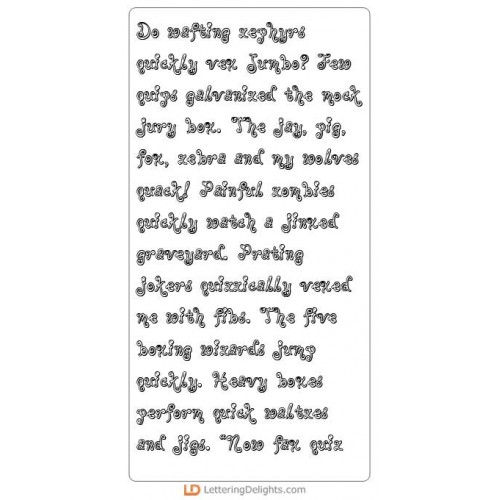 Do wafting zephyrs
quickly vex Jumbo? Few
quips galvanized the mock
jury box. The jay, pig,
fox, zebra and my wolves
quack! Painful zombies
quickly watch a jinxed
graveyard. Prating
jokers quizzically vexed
me with fibs. The five
boxing wizards jump
quickly. Heavy boxes
perform quick waltzes
and jigs. "Now fax quiz
LD LetteringDelights.com